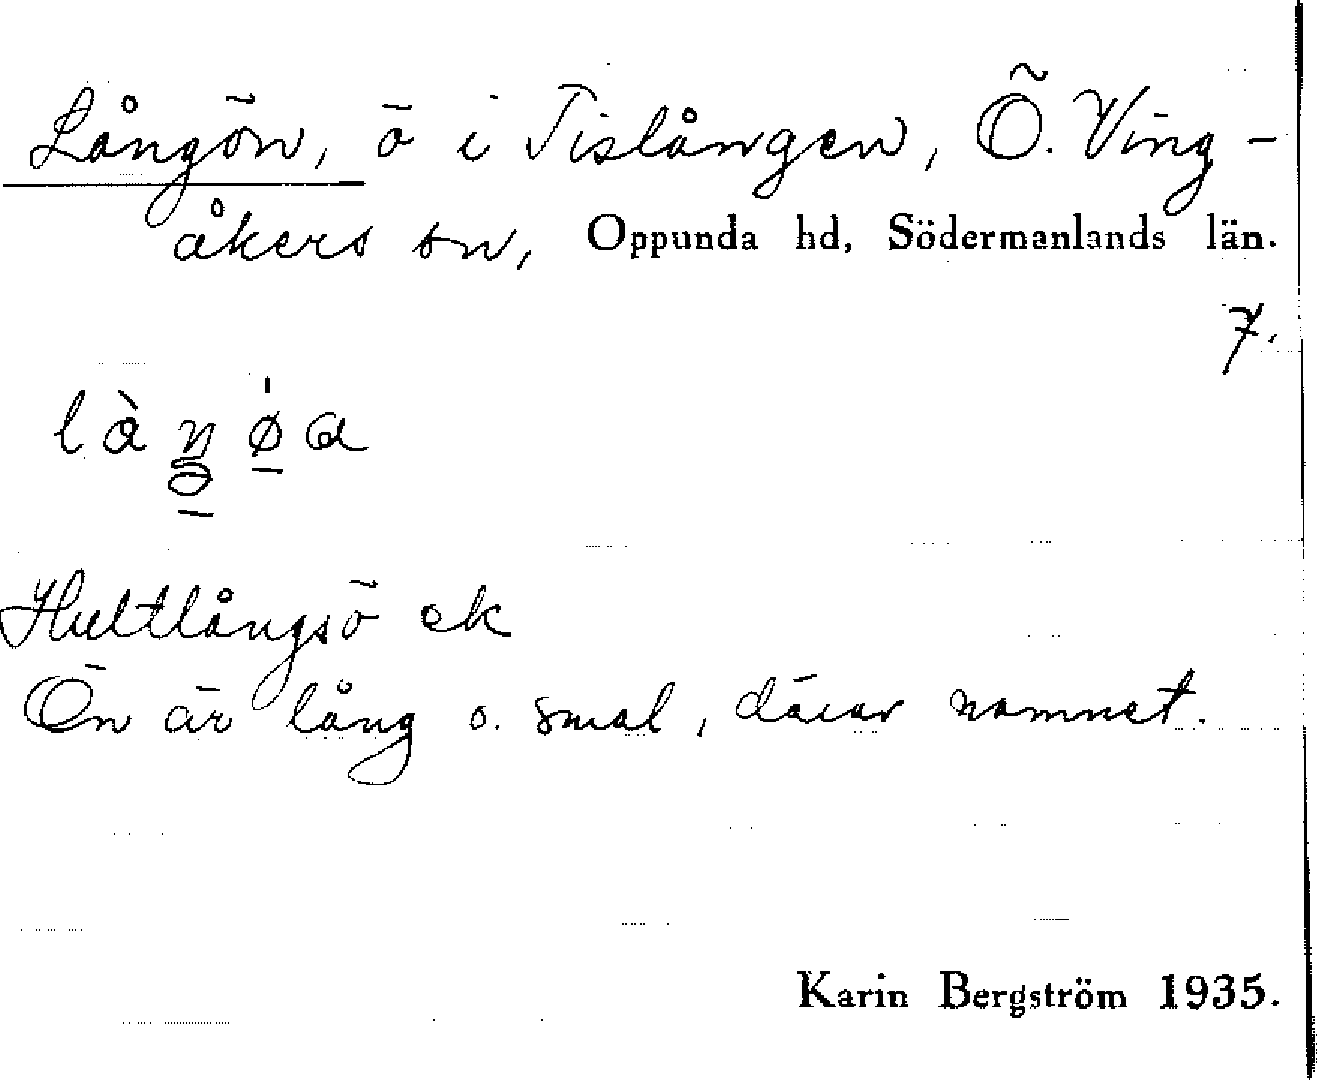 Långön, ö i Tislången, Ö. Ving-
åkers sn, Oppunda hd, Södermanlands län.
7.
Hultlångsö ek
Ön är lång o. smal, därav namnet.
Karin Bergström 1935.